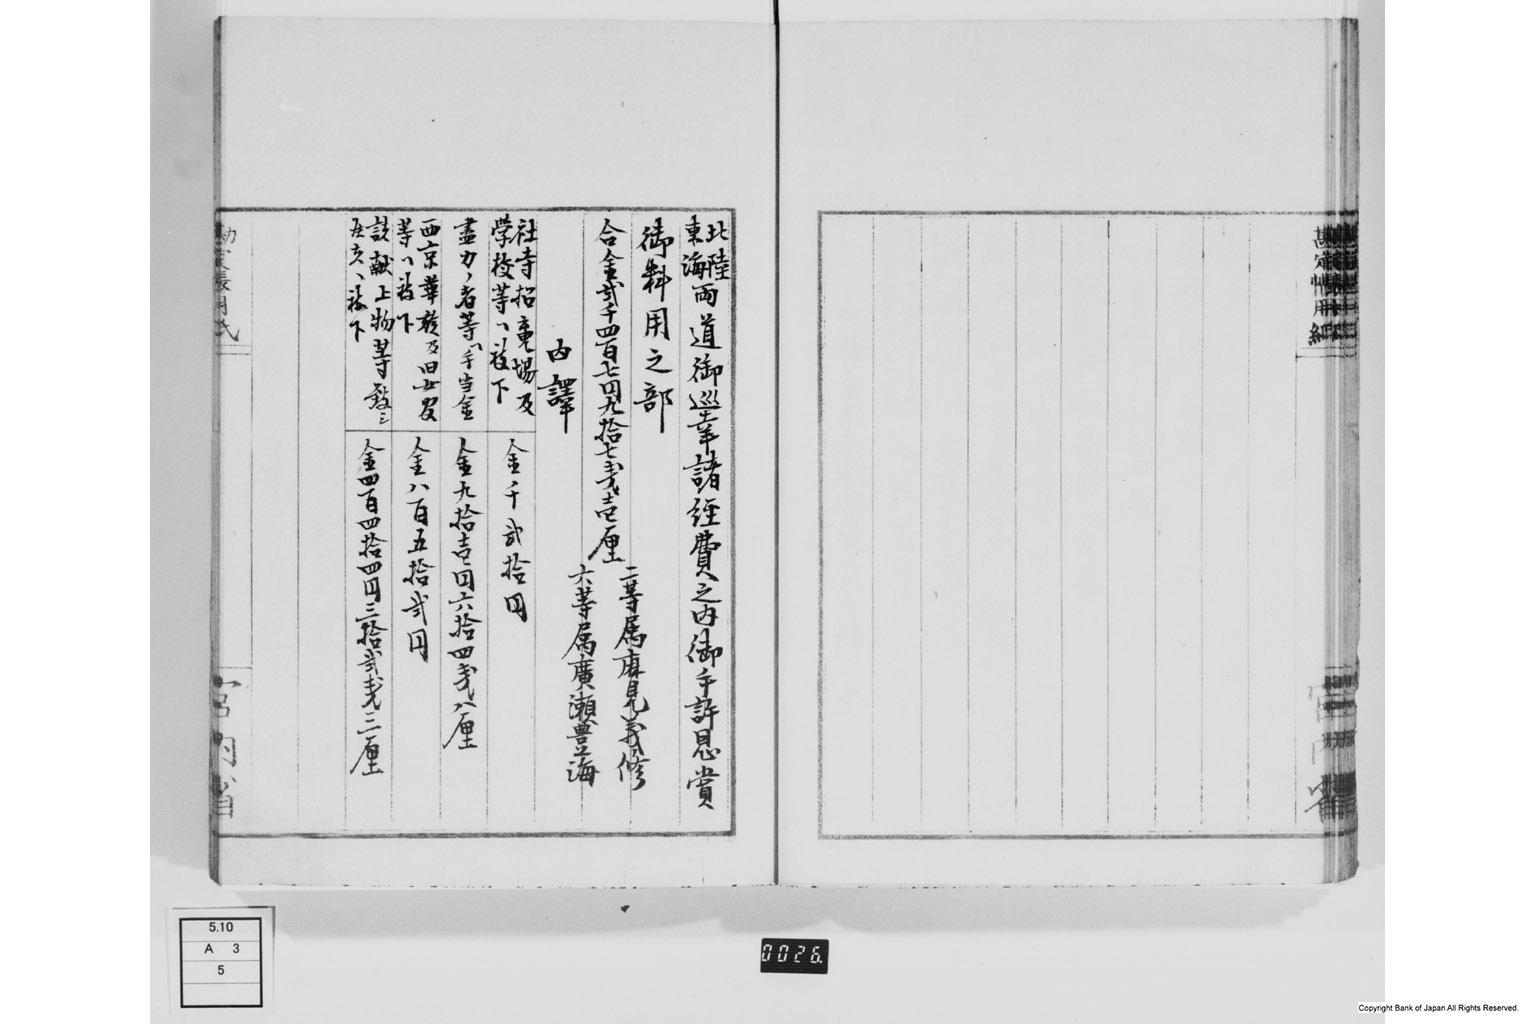 北陸
東海
両道御巡幸諸経費之内御手許恩賞
御料用之部
合金弐千四百七円九拾七銭壱厘
二等属麻見義修
六等属廣瀬豊海
内譯
社寺招魂場及
学校等ヘ被下
金千弐拾円
盡力ノ者等ヘ手当金
金九拾壱円六拾四銭八厘
西京華族及旧女官
等ヘ被下
金八百五拾弐円
諸献上物等致シ
金四百四拾四円三拾弐銭三厘
宮内省
勘定帳用紙
宮内省
5.10
A 3
5
0026
Copyright Bank of Japan All Rights Reserved.